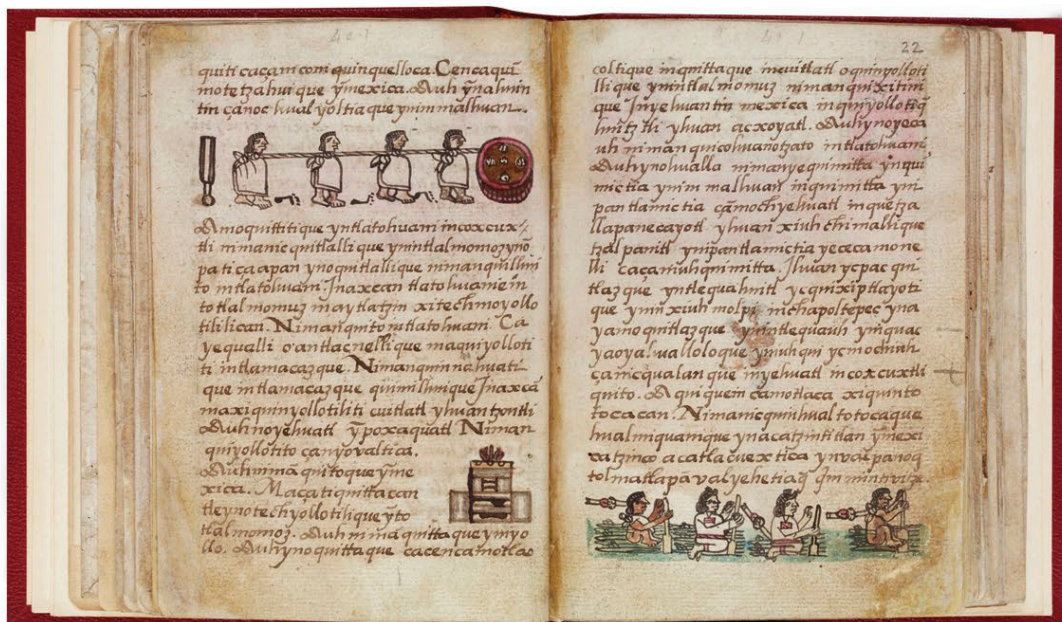 quiti caçam coni quinquelloca. Cencaquī
motetzahuique ȳmexica. Auh ȳnalmin
tin çanoc hualyoltiaque ynin malhuan..
Amoquittitique yntlatohuani incoxcux
tli niman ic quitlallique ynintlalmomoz ynō
pa tiçaapan ynoquitlallique niman quilhui
to intlatohuani. Inaxcan tlatohuanie in
totlalmomuz ma ytlatzin xitechmoyollo
tililican. Nimanquito intlatohuani. Ca
yequalli oantlacnellique maquiyolloti
ti intlamacazque. Nimanquinnahuati
que intlamacazque quimilhuique Inaxcā
maxiquinyollotiliti cuitlatl yhuan tzontli
Auhnoyehuatl ȳpoxaquatl Niman
quiyollotito çanyovaltica.
Auhnimā quitoque ȳme
xica. Maçatiquittacan
tleynotechyollotilique ȳto
tlalmomoz. Auhnimāquittaque ynyyo
llo. Auhynoquittaque cacencamotlao
22
coltique inquittaque incuitlatl oquinyolloti
llique ynintlalmomuz nimanquixitin
que Inyehuantin mexica inquiyollotiq̄
huitztli yhuan acxoyatl. Auhynoyeca
uh niman quicohuanotzato intlatohuani
Auhynohualla nimanyequimitta ynqui
mictia ynin malhuan inquimitta yn
pan tlamictia cāmochyehuatl inquetza
llapanecayotl yhuan xiuhchimallique
tzalpanitl ynipantlamictia yececamone
lli caçaniuhquimitta. Ihuan ycpac qui
tlazque yntlequahuitl ycquixiptlayoti
que ynin xiuhmolpi inchapoltepec yna
yamoquitlazque ynintlequauh yniquac
yaoyalhualloloque yniuhqui ycmochiuh
çanicqualanque inyehuatl incoxcuxtli
quito. Aquiquein cāmotlaca xiquinto
tocacan. Nimanicquinhualtotocaque
hualmiquanique ynacatzintitlan ȳmexi
catzinco acatlacuextica ynvalpanoq̄